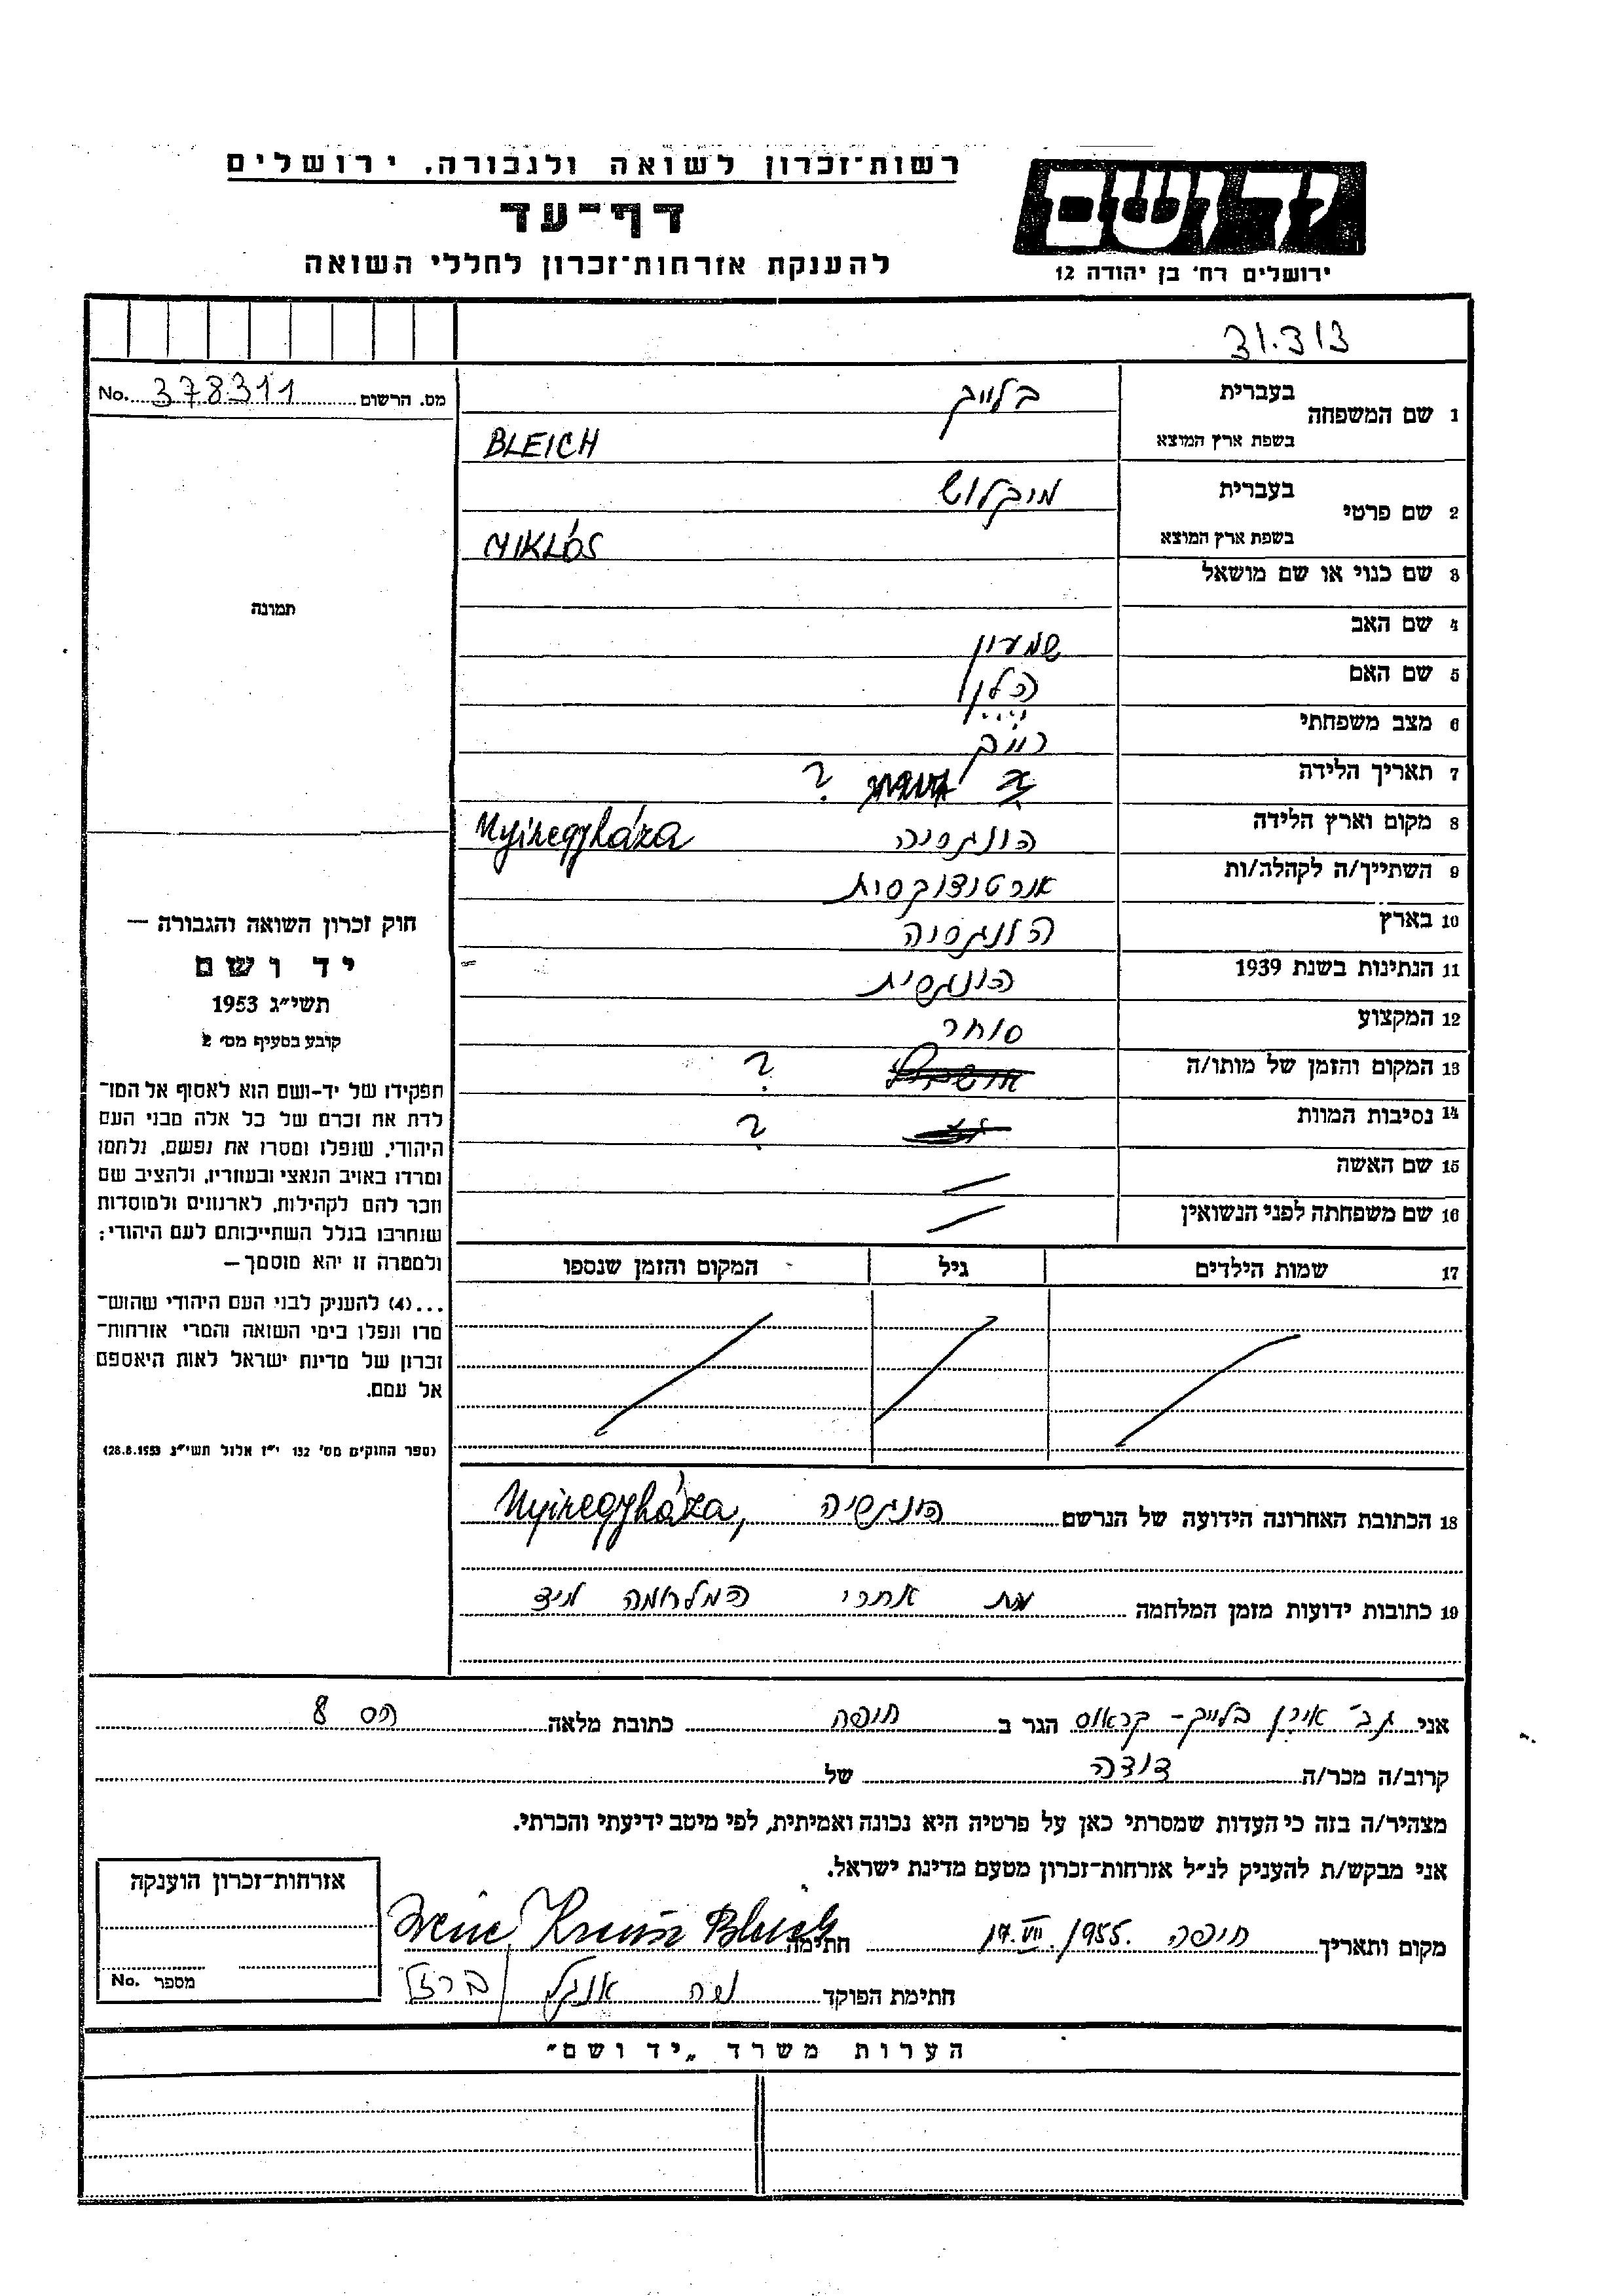 רשות־זכרון לשואה ולגבורה, ירושלים
דף־עד
להענקת אזרחות־זכרון לחללי השואה
יד ושם
ירושלים רח' בן יהודה 12
31.313
מס. הרשום 378311 No.
1 שם המשפחה בעברית בלייך
בשפת ארץ המוצא BLEICH
2 שם פרטי בעברית מיקלוש
בשפת ארץ המוצא MIKLÓS
3 שם כנוי או שם מושאל
4 שם האב שמעון
5 שם האם הלן
6 מצב משפחתי רווק
7 תאריך הלידה ?
8 מקום וארץ הלידה הונגריה Nyiregyháza
9 השתייך/ה לקהלה/ות אורטודוקסית
10 בארץ הונגריה
11 הנתינות בשנת 1939 הונגרית
12 המקצוע סוחר
13 המקום והזמן של מותו/ה ?
14 נסיבות המוות ?
15 שם האשה
16 שם משפחתה לפני הנשואין
17 שמות הילדים גיל המקום והזמן שנספו
18 הכתובת האחרונה הידועה של הנרשם הונגריה Nyiregyháza,
19 כתובות ידועות מזמן המלחמה מת אחרי המלחמה מיד
תמונה
חוק זכרון השואה והגבורה —
יד ושם
תשי״ג 1953
קובע בסעיף מס' 2
תפקידו של יד-ושם הוא לאסוף אל המו־
לדת את זכרם של כל אלה מבני העם
היהודי, שנפלו ומסרו את נפשם, נלחמו
ומרדו באויב הנאצי ובעוזריו, ולהציב שם
וזכר להם לקהילות, לארגונים ולמוסדות
שנחרבו בגלל השתייכותם לעם היהודי;
ולמטרה זו יהא מוסמך —
...(4) להעניק לבני העם היהודי שהוש־
מדו ונפלו בימי השואה והמרי אזרחות־
זכרון של מדינת ישראל לאות היאספם
אל עמם.
(ספר החוקים מס' 132 י״ז אלול תשי״ג 28.8.1953)
אני גב' אירן בלייך - קראוס הגר ב חיפה כתובת מלאה הס 8
קרוב/ה מכר/ה דודה של
מצהיר/ה בזה כי העדות שמסרתי כאן על פרטיה היא נכונה ואמיתית, לפי מיטב ידיעתי והכרתי.
אני מבקש/ת להעניק לנ״ל אזרחות־זכרון מטעם מדינת ישראל.
מקום ותאריך חיפה 17.VII.1955. חתימה Irene Kraus Bleich
חתימת הפוקד
אזרחות־זכרון הוענקה
מספר No.
הערות משרד „יד ושם״